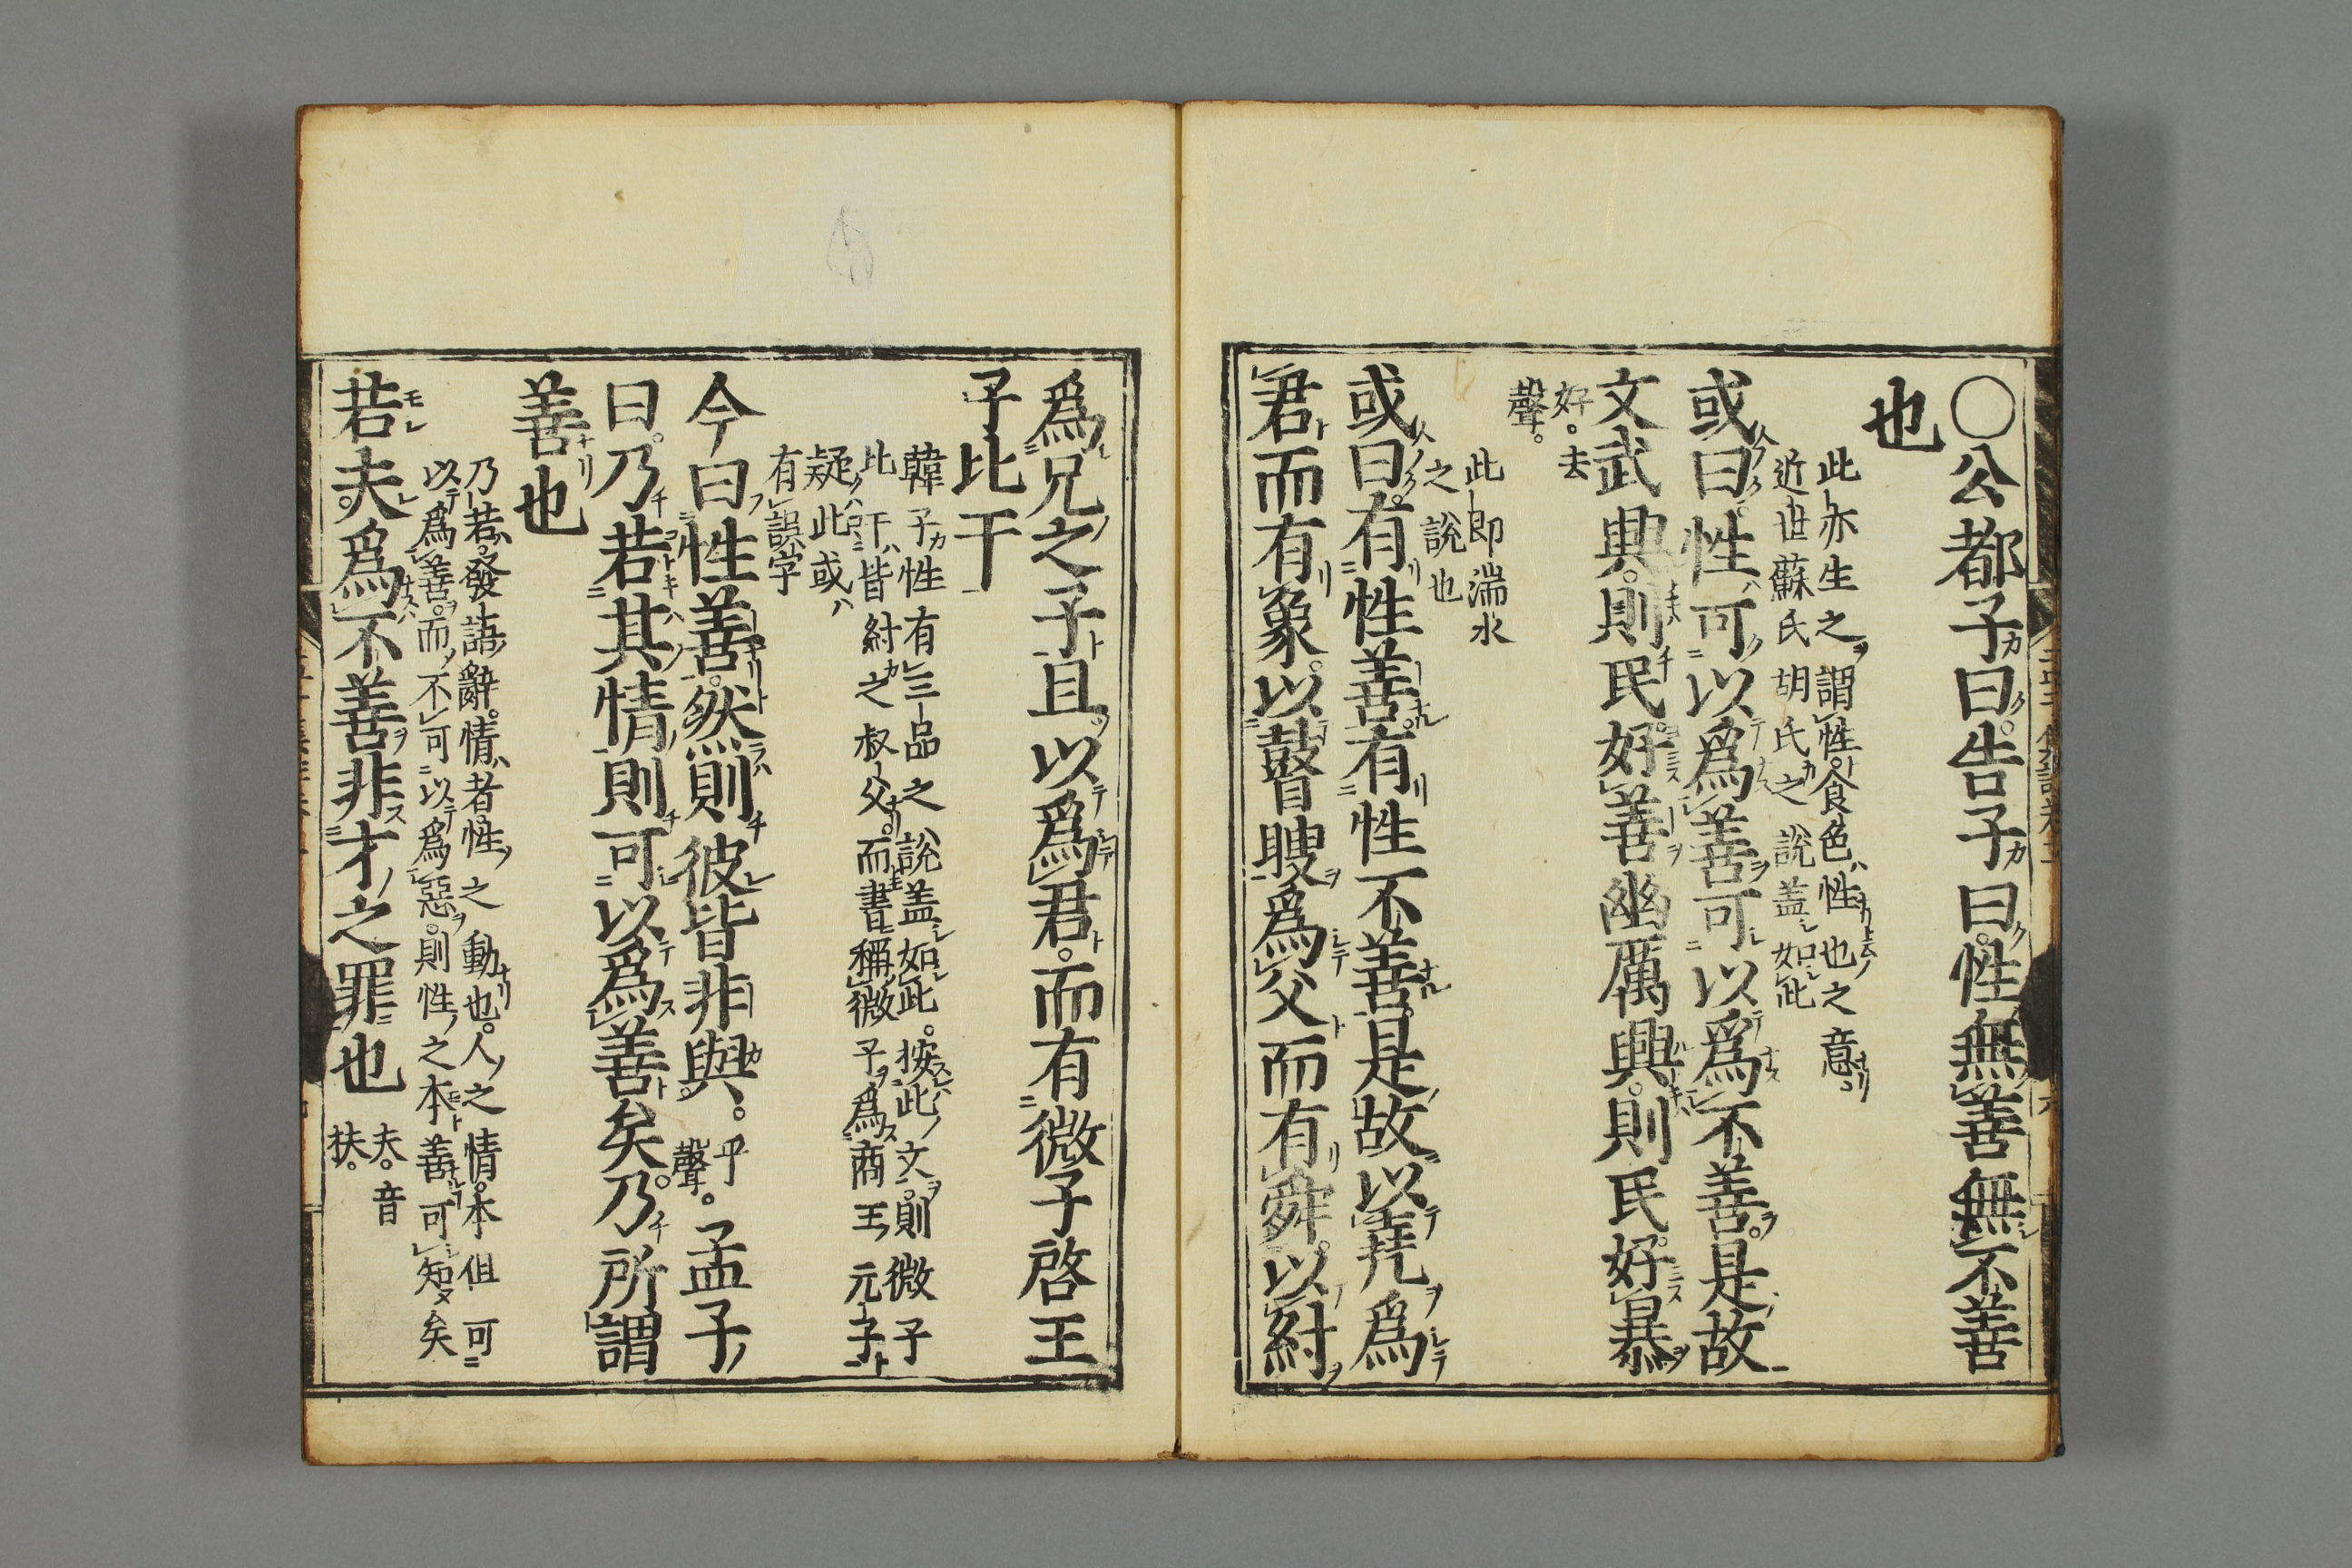 〇公都子曰。告子曰。性無善無不善
也
此亦生之謂性。食色性也之意。
近世蘇氏胡氏之說盖如此
或曰。性可以爲善可以爲不善。是故
文武興。則民好善幽厲興。則民好暴
好。去
聲。
此即湍水
之說也
或曰。有性善。有性不善。是故以尭爲
君而有象。以瞽瞍爲父而有舜。以紂
爲兄之子且以爲君。而有微子啓王
子比干
韓子性有三品之說盖如此。按此文。則微子
比干皆紂之叔父。而書稱微子爲商王元子
疑此或
有誤字
今曰性善。然則彼皆非與。平
聲。孟子
曰。乃若其情則可以爲善矣。乃所謂
善也
乃若。發語辭。情者。性之動也。人之情。本但可
以爲善。而不可以爲惡。則性之本善可知矣
若夫。爲不善非才之罪也夫。音
扶。